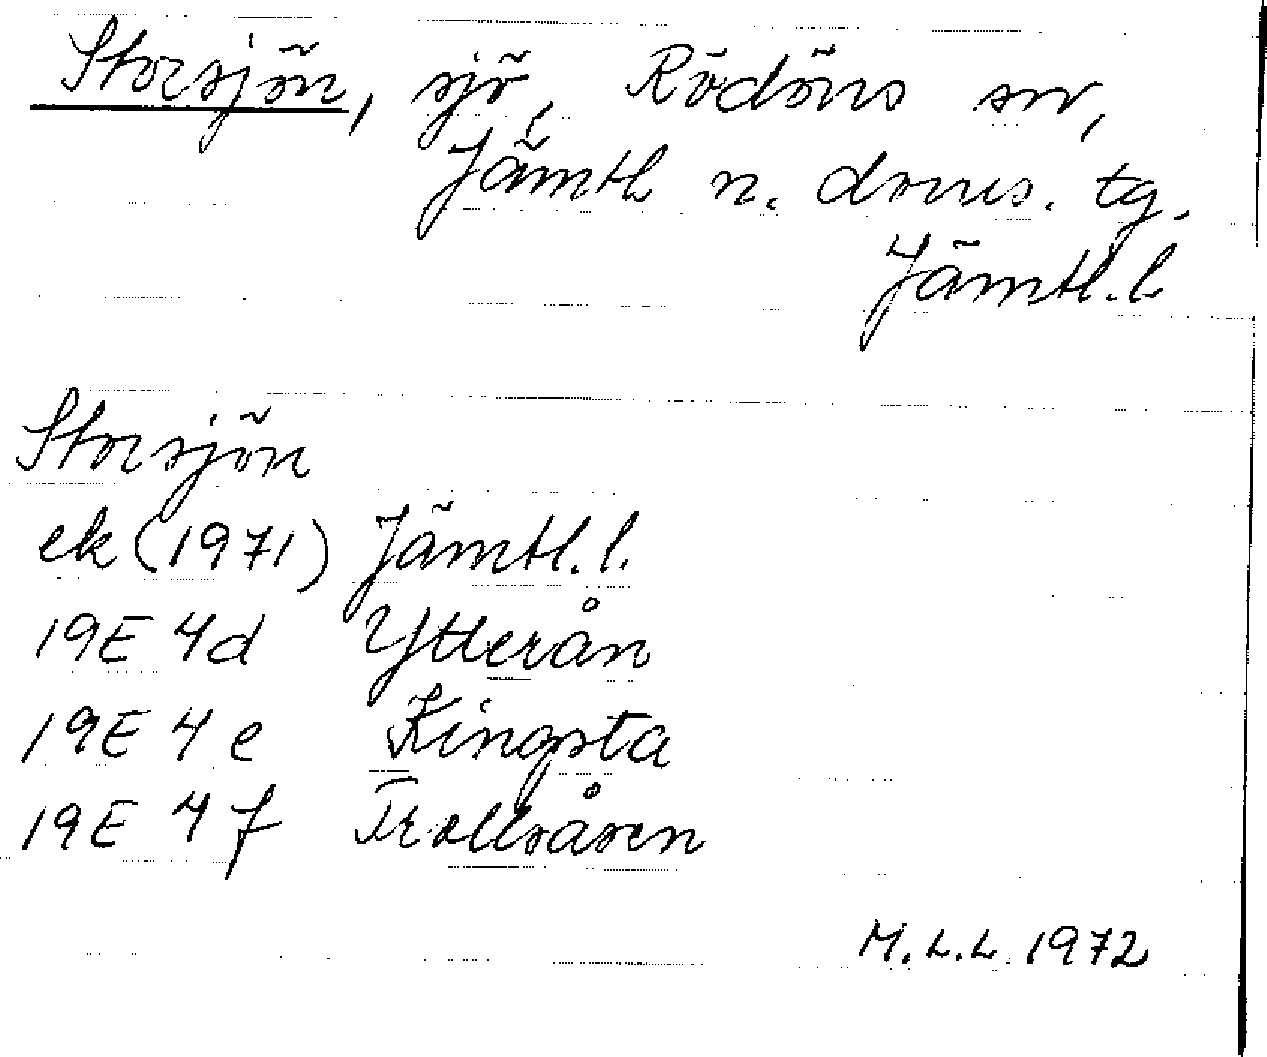 Storsjön, sjö, Rödöns sn,
Jämtl n. doms. tg.
Jämtl. l
Storsjön
ek (1971) Jämtl. l.
19E 4d Ytterån
19E 4e Kingsta
19E 4f Trollsåsen
M.L.L. 1972